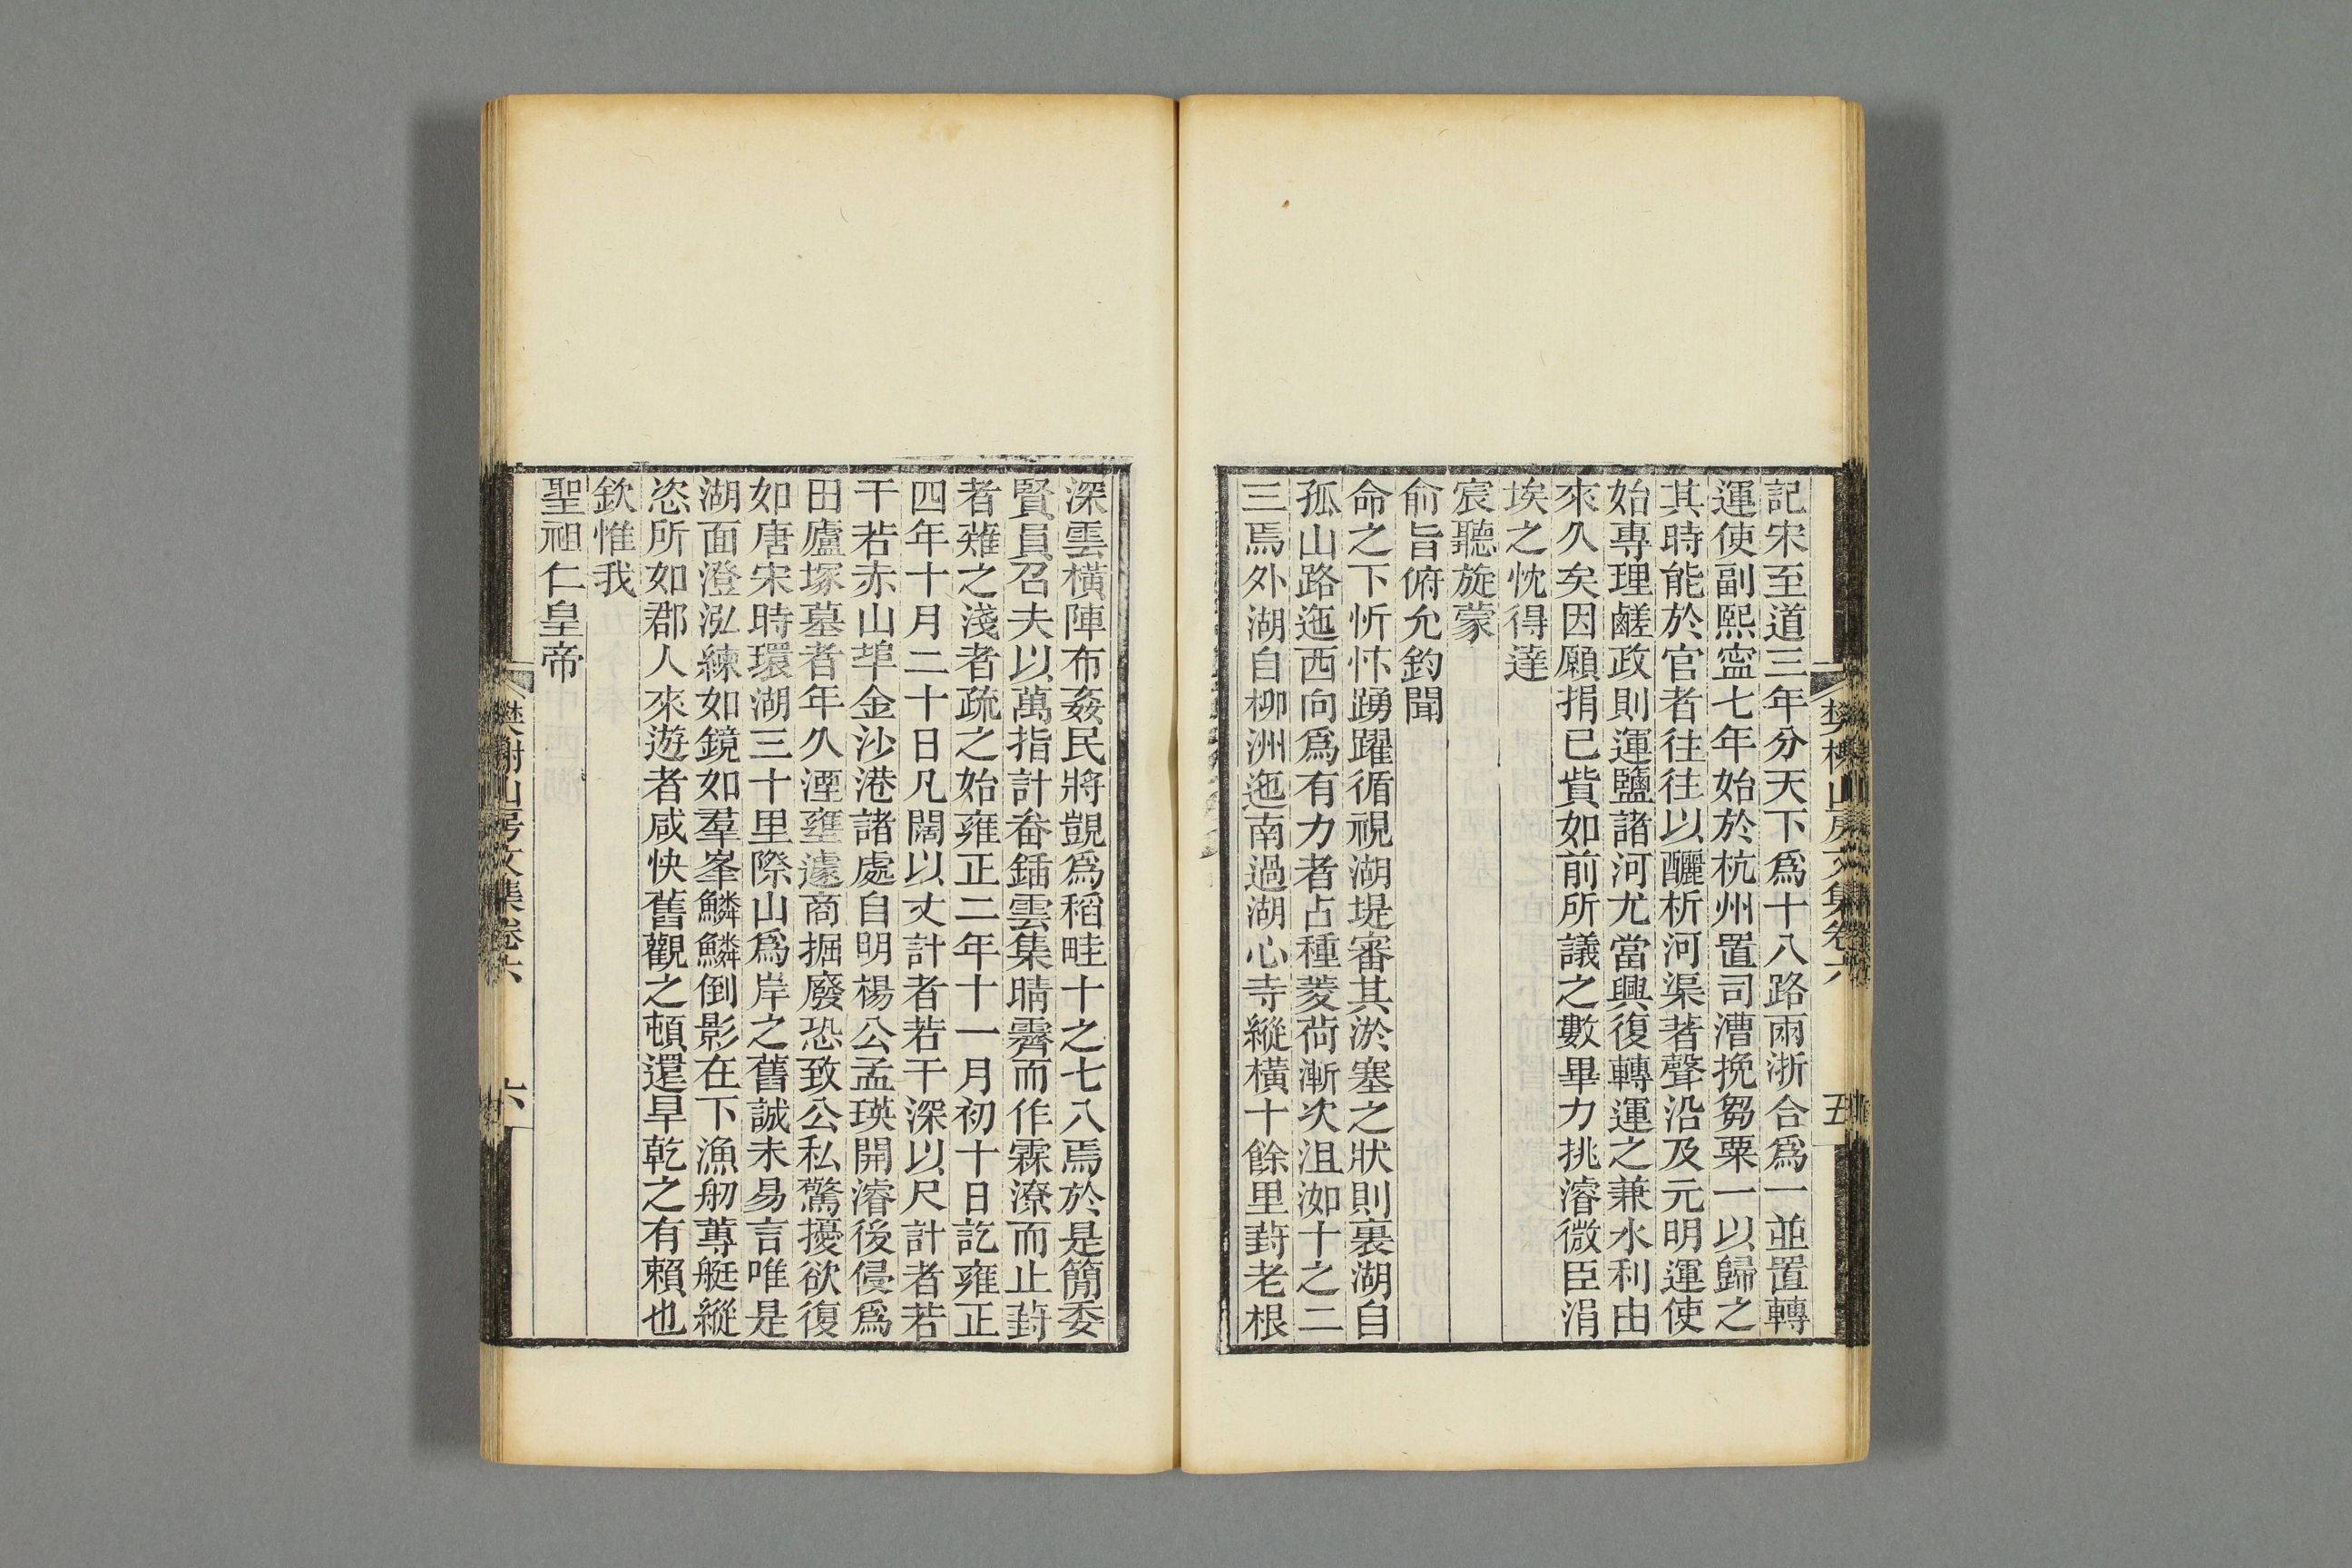 記宋至道三年分天下爲十八路兩浙合爲一並置轉
運使副熙寍七年始於杭州置司漕挽芻粟一以歸之
其時能於官者往往以釃析河渠著聲沿及元明運使
始專理鹺政則運鹽諸河尤當興復轉運之兼水利由
來久矣因願捐已貲如前所議之數畢力挑濬微臣涓
埃之忱得達
宸聽旋蒙
俞旨俯允鈞聞
命之下忻忭踴躍循視湖堤審其淤塞之狀則裏湖自
孤山路迤西向爲有力者占種菱荷漸次沮洳十之二
三焉外湖自柳洲迤南過湖心寺縱橫十餘里葑老根
深雲橫陣布姦民將覬爲稻畦十之七八焉於是簡委
賢員召夫以萬指計畚鍤雲集晴霽而作霖潦而止葑
者薙之淺者疏之始雍正二年十一月初十日訖雍正
四年十月二十日凡闊以丈計者若干深以尺計者若
干若赤山埠金沙港諸處自明楊公孟瑛開濬後侵爲
田廬塚墓者年久湮壅遽商掘廢恐致公私驚擾欲復
如唐宋時環湖三十里際山爲岸之舊誠未易言唯是
湖面澄泓練如鏡如羣峯鱗鱗倒影在下漁舠蓴艇縱
恣所如郡人來遊者咸快舊觀之頓還旱乾之有賴也
欽惟我
聖祖仁皇帝
樊榭山房文集卷六
六
樊榭山房文集卷六
五